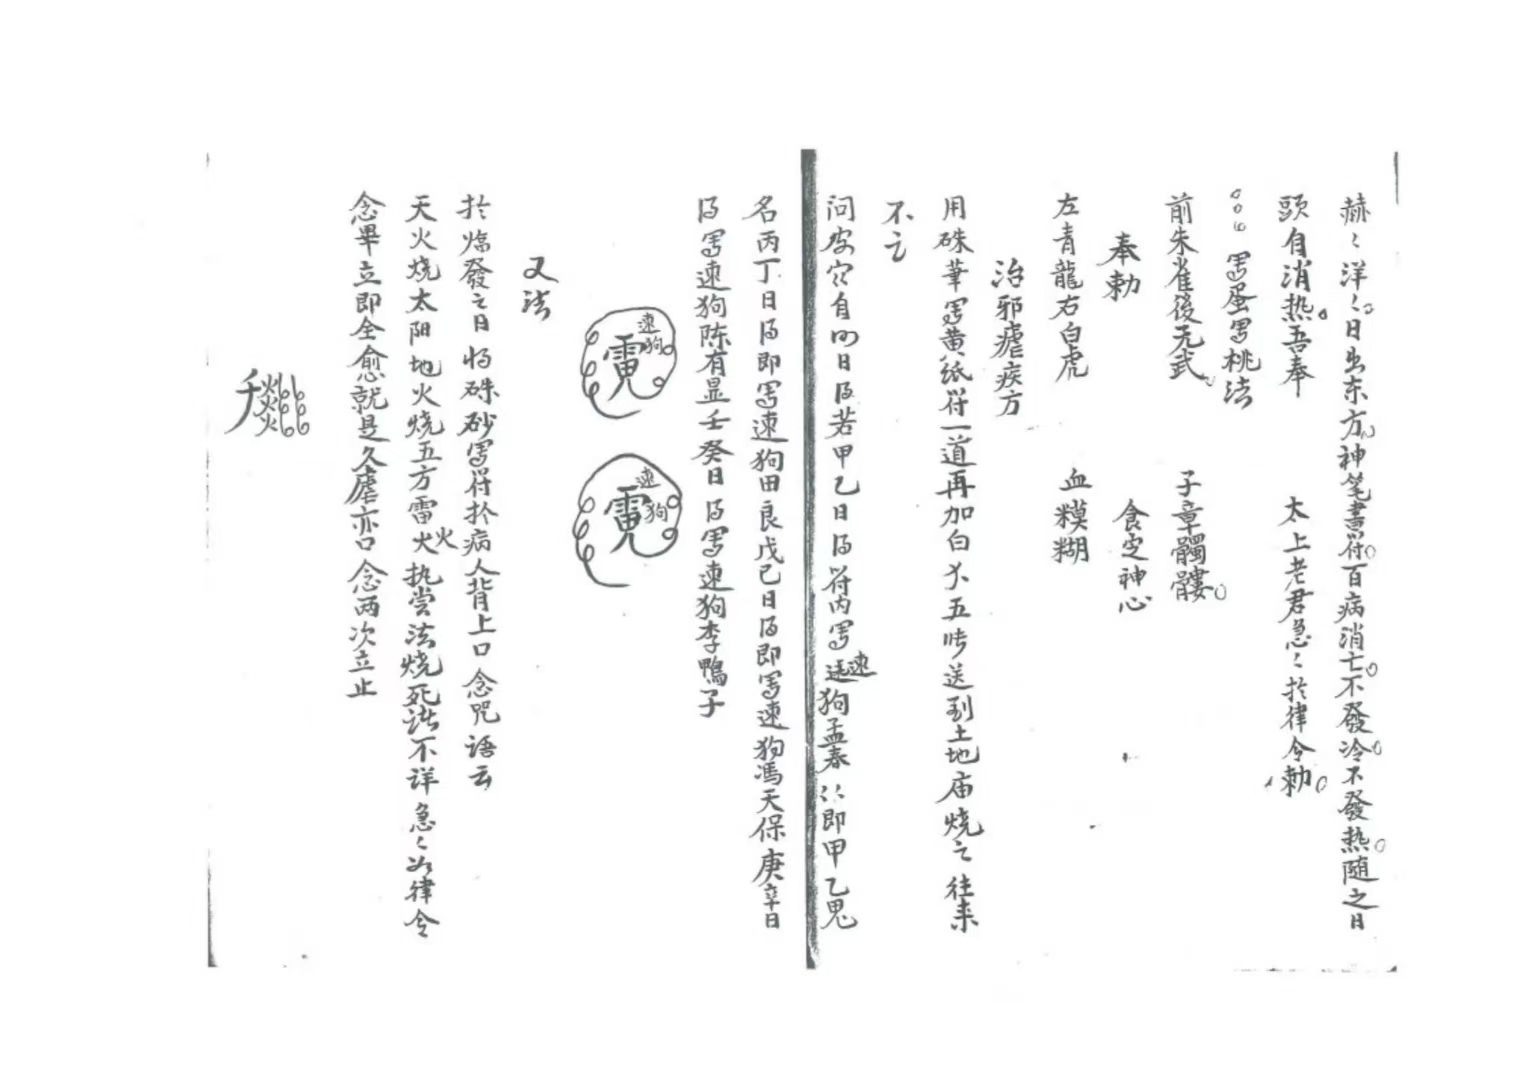 赫〻洋〻日出东方神笔書符百病消亡不發冷不發热随之日
頭自消热吾奉 太上老君急〻於律令勅
写蛋写桃法
前朱雀後无武 子章髑髏
奉勅 食定神心
左青龍右白虎 血糢糊
治邪瘧疾方
用硃筆写黄紙符一道再加白 五 送到土地庙烧之往来
不之
问 自 日 若甲乙日 符内写速狗孟春 即甲乙鬼
名丙丁日 即写速狗田良戊己日 即写速狗馮天保庚辛日
写速狗陈有显壬癸日 写速狗李鴨子
速狗
速狗
又法
於临發之日将硃砂写符於病人背上口念咒语云
天火烧太阳地火烧五方雷火执尝法烧死 不详急〻如律令
念畢立即全愈就是久瘧亦口念两次立止